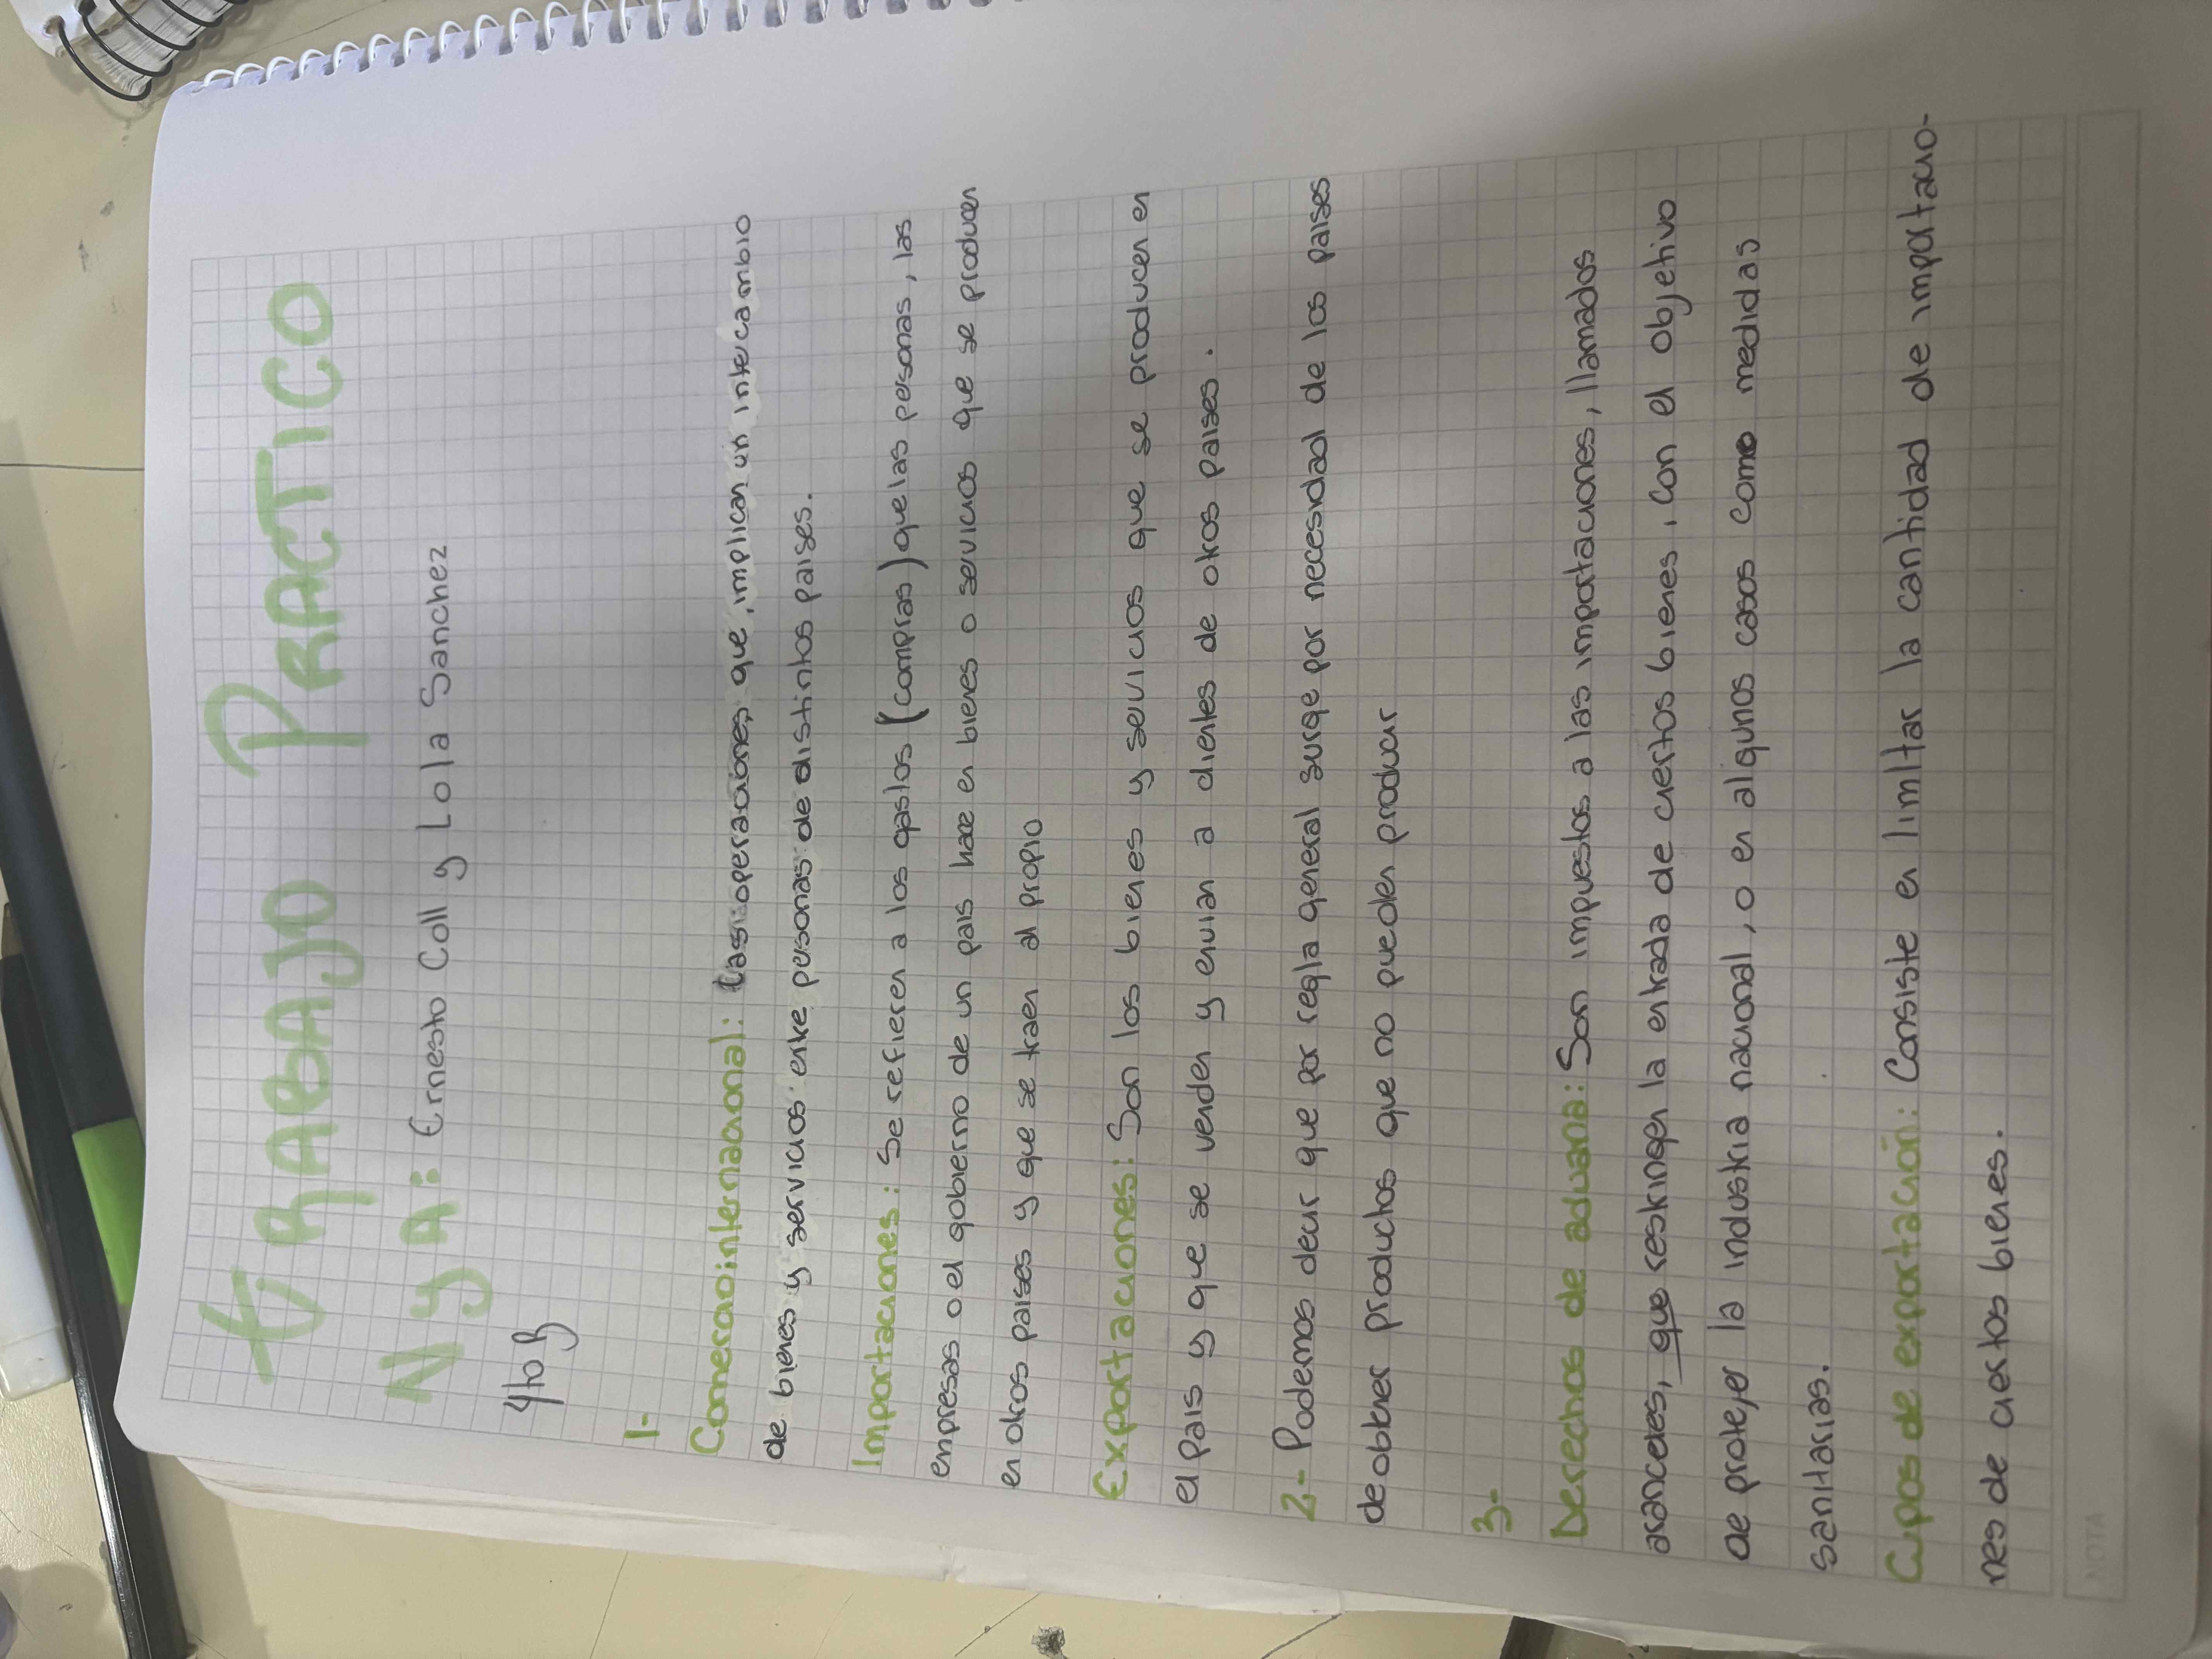 trabajo Practico
N y A: Ernesto Coll y Lola Sanchez
4to B
1-
Comercio internacional: Las operaciones que, implican un intecambio
de bienes y servicios entre personas de distintos paises.
Importaciones: Se refieren a los gastos (compras) que las personas, las
empresas o el gobierno de un pais hace en bienes o servicios que se producen
en otros paises y que se traen al propio
Exportaciones: Son los bienes y sevicios que se producen en
el pais y que se venden y envian a clientes de otros paises.
2- Podemos decir que por regla general surge por necesidad de los paises
de obtener productos que no pueden producir
3-
Derechos de aduana: Son impuestos a las importaciones, llamados
aranceles, que restringen la entrada de ciertos bienes, con el objetivo
de protejer la industria nacional, o en algunos casos como medidas
sanitarias.
Cupos de exportación: Consiste en limitar la cantidad de importacio-
nes de ciertos bienes.
NOTA